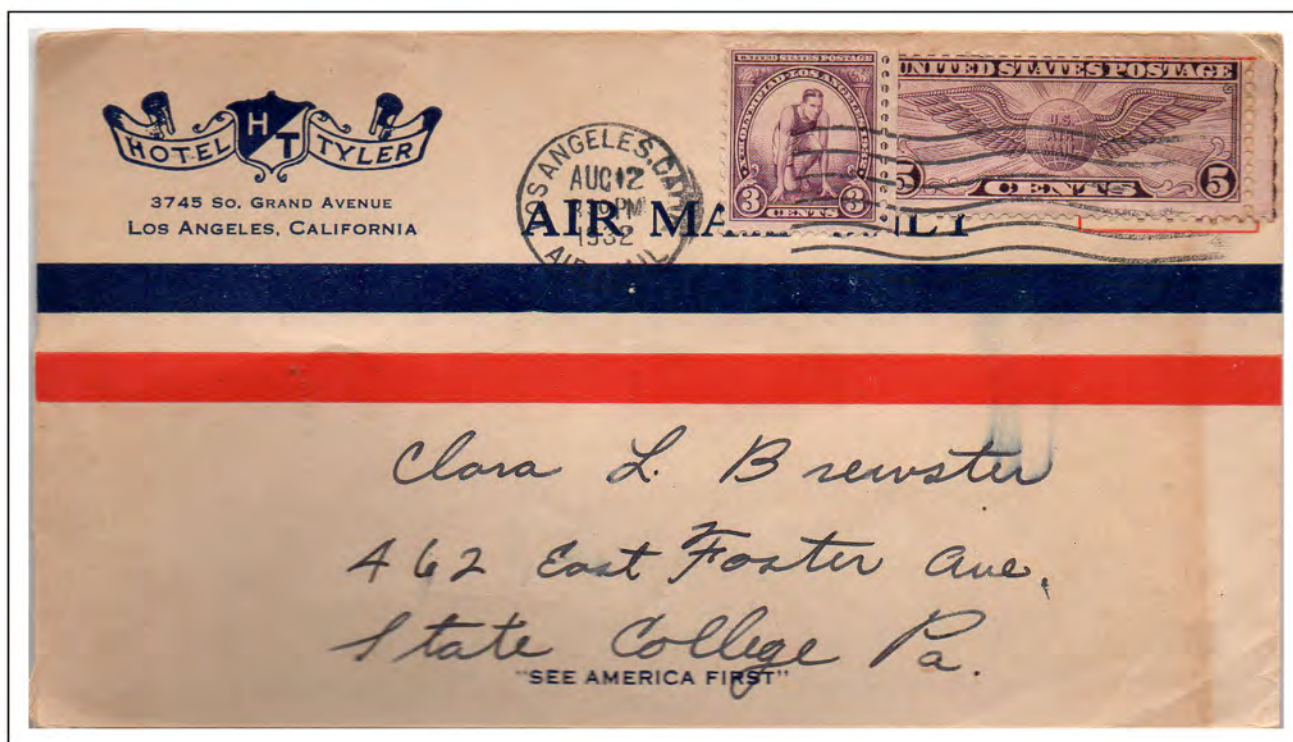 HOTEL HT TYLER
3745 SO. GRAND AVENUE
LOS ANGELES, CALIFORNIA
LOS ANGELES, CALIF
AUG 12
PM
1932
AIR MAIL
UNITED STATES POSTAGE
XTH OLYMPIAD · LOS ANGELES 1932
3 CENTS 3
UNITED STATES POSTAGE
U.S.
AIR
MAIL
5 CENTS 5
AIR MAIL
Clara L. Brewster
462 East Foster Ave.
State College Pa.
"SEE AMERICA FIRST"